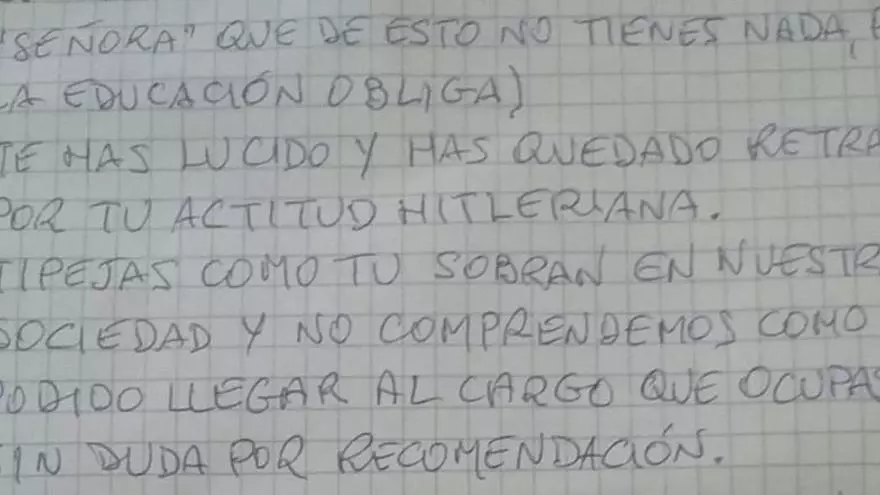 "SEÑORA" QUE DE ESTO NO TIENES NADA,
LA EDUCACIÓN OBLIGA)
TE HAS LUCIDO Y HAS QUEDADO RETRA
POR TU ACTITUD HITLERIANA.
TIPEJAS COMO TU SOBRAN EN NUESTR
SOCIEDAD Y NO COMPRENDEMOS COMO
PODIDO LLEGAR AL CARGO QUE OCUPAS
SIN DUDA POR RECOMENDACIÓN.